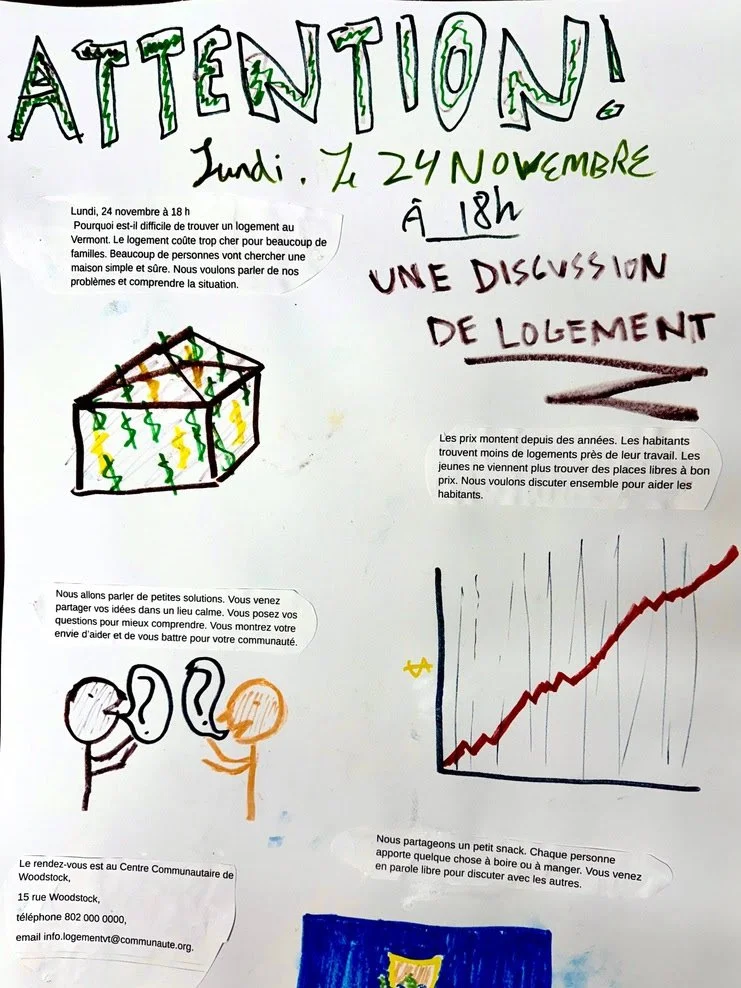 ATTENTION!
Lundi. Le 24 NOVEMBRE
À 18h
UNE DISCUSSION
DE LOGEMENT
Lundi, 24 novembre à 18 h
Pourquoi est-il difficile de trouver un logement au
Vermont. Le logement coûte trop cher pour beaucoup de
familles. Beaucoup de personnes vont chercher une
maison simple et sûre. Nous voulons parler de nos
problèmes et comprendre la situation.
$ $ $ $ $ $ $ $ $ $ $ $
Les prix montent depuis des années. Les habitants
trouvent moins de logements près de leur travail. Les
jeunes ne viennent plus trouver des places libres à bon
prix. Nous voulons discuter ensemble pour aider les
habitants.
$
Nous allons parler de petites solutions. Vous venez
partager vos idées dans un lieu calme. Vous posez vos
questions pour mieux comprendre. Vous montrez votre
envie d'aider et de vous battre pour votre communauté.
? ?
Nous partageons un petit snack. Chaque personne
apporte quelque chose à boire ou à manger. Vous venez
en parole libre pour discuter avec les autres.
Le rendez-vous est au Centre Communautaire de
Woodstock,
15 rue Woodstock,
téléphone 802 000 0000,
email info.logementvt@communaute.org.